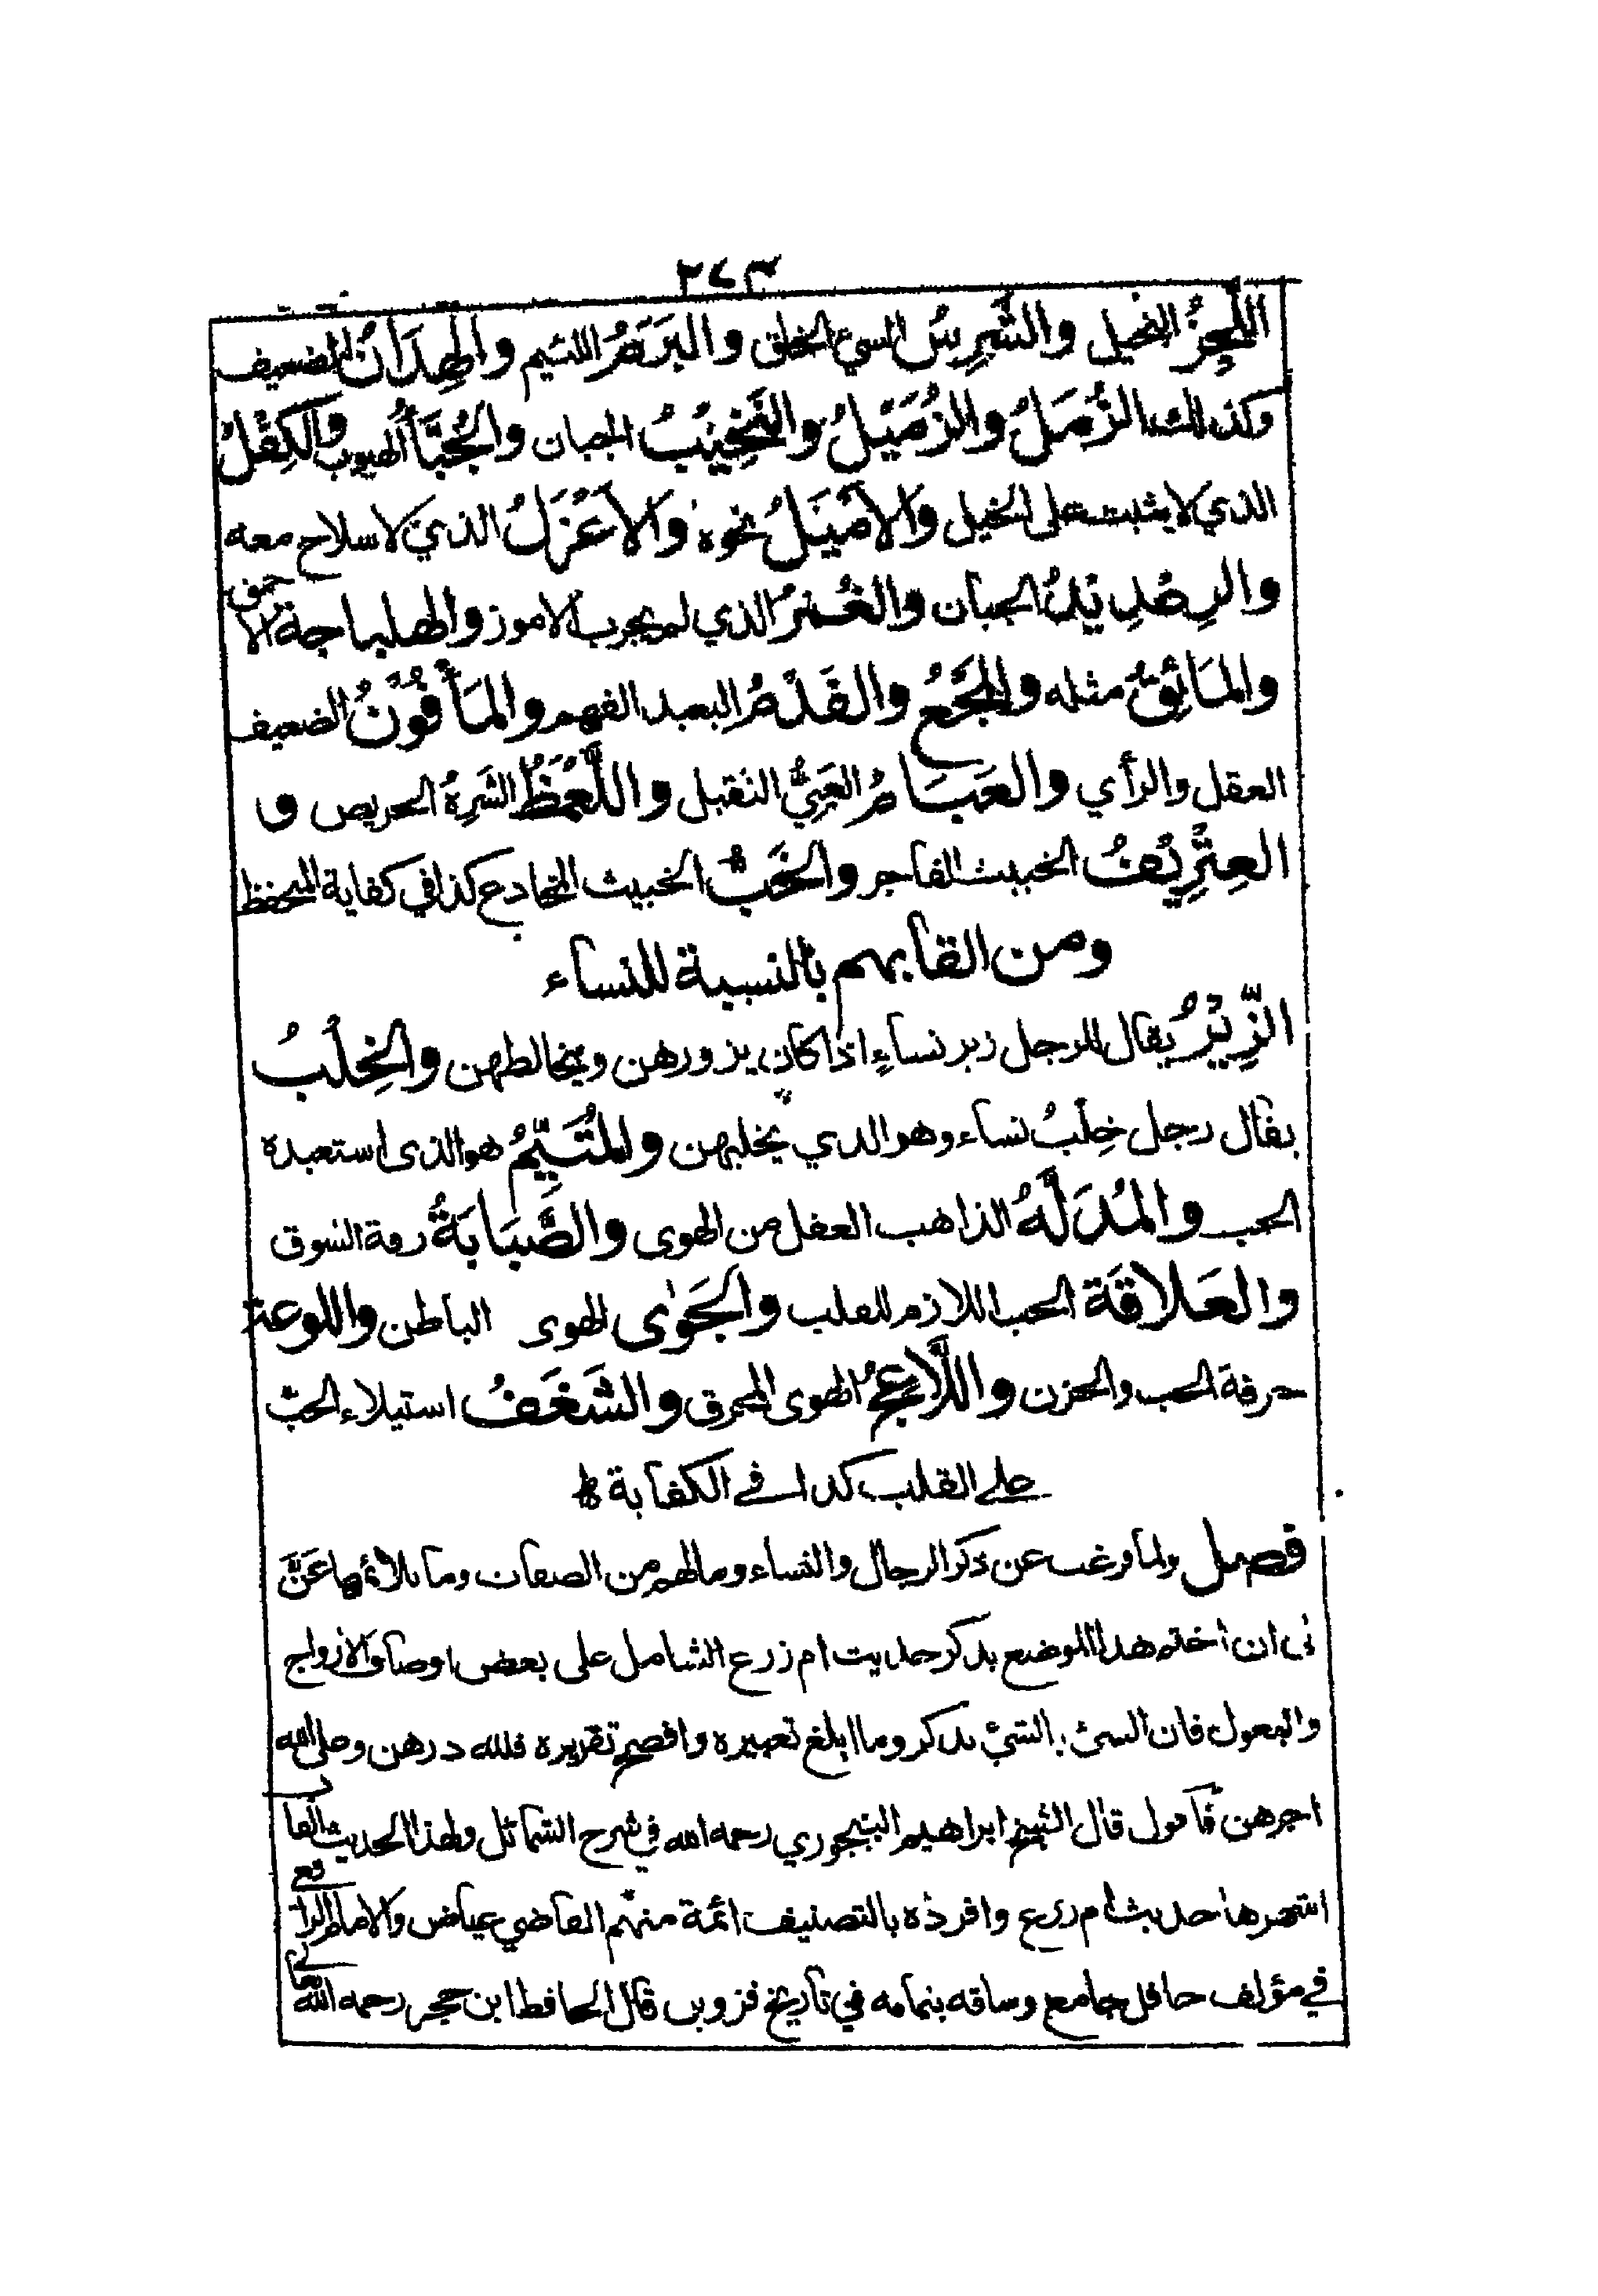 ٢٤٣
اللَّحِزُ البخيل والشَّرِسُ السيئ الخلق والبَرَمُ اللئيم والهِدَانُ الضعيف
وكذلك الزُّمَّلُ والزُّمَّيْلُ والنَّخِيْبُ الجبان والجُبَّأُ الهيوب والكِفْلُ
الذي لا يثبت على الخيل والأَمْيَلُ نحوه والأَعْزَلُ الذي لا سلاح معه
والرِعْدِيْدُ الجبان والغُمْرُ الذي لم يجرب الامور والهلباجة الاحمق
والمَائِقُ مثله والفَدْمُ البعيد الفهم والمَأْفُوْنُ الضعيف
العقل والرأي والعَبَامُ العَيِيُّ الثقيل واللَّعْمَظُ الشَرِهُ الحريص و
العِتْرِيْفُ الخبيث الفاجر والخَبُّ الخبيث المخادع كذا في كفاية المتحفظ
ومن القابهم بالنسبة للنساء
الزِّيْرُ يقال للرجل زير نساءٍ اذا كان يزورهن ويخالطهن والخِلْبُ
يقال رجل خِلْبُ نساء وهو الذي يخلبهن والمُتَيَّمُ هو الذى استعبده
الحب والمُدَلَّهُ الذاهب العقل من الهوى والصَّبَابَةُ رقة الشوق
والعَلاقَة الحب اللازم للقلب والجَوٰى الهوى الباطن واللوعة
حرقة الحب والحزن واللَّاعِجُ الهوى المحرق والشَغَفُ استيلاء الحبّ
على القلب كذا في الكفاية
فصل ولما فرغت عن ذكر الرجال والنساء وما لهم من الصفات وما يلائمها عَنَّ
لى ان اختم هذا الموضع بذكر حديث ام زرع الشامل على بعض اوصاف الازواج
والبعول فان الشئ بالشئ يذكر وما ابلغ تعبيره وافصح تقريره فلله درهن وعلى الله
اجرهن فاقول قال الشيخ ابراهيم البيجوري رحمه الله في شرح الشمائل ولهذا الحديث القاب
اشهرها حديث ام زرع وافرده بالتصنيف ائمة منهم القاضي عياض والامام الرافعي
في مؤلف حافل جامع وساقه بتمامه في تاريخ قزوين قال الحافظ ابن حجر رحمه الله تعالى